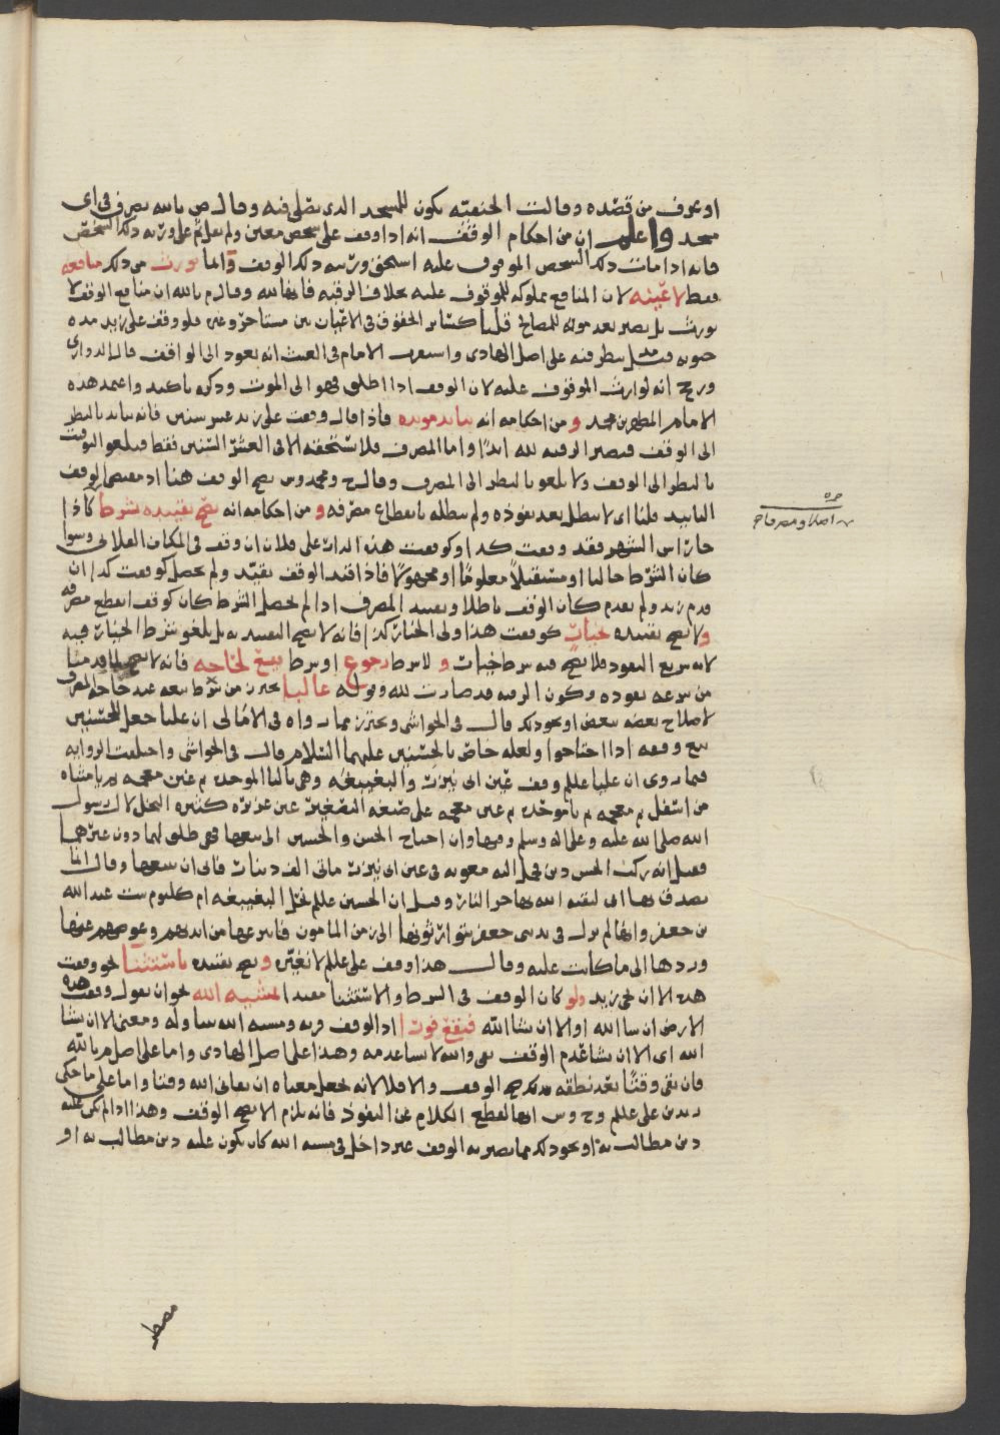 او عرف من قصده وقالت الحنفية يكون للمسجد الذي يصلي فيه وقال ص بالله يصرف في اي
مسجد واعلم ان من احكام الوقف انه اذا وقف على شخص معين ولم يقل ثم على ورثه ذلك الشخص
فانه اذا مات ذلك الشخص الموقوف عليه استحق ورثته ذلك الوقف وانما تورث من ذلك منافعه
فقط لا عينه لان المنافع مملوكه للموقوف عليه بخلاف الرقبه فانها لله وقال م بالله ان منافع الوقف لا
تورث بل يصير بعد موته للمصالح قلنا كسائر الحقوق في الاعيان من مستاجر وغيره فلو وقف على زيد مده
حيوته فقط فنظر فيه على اصل الهادي واستقرب الامام في الغيث انه يعود الى الواقف قال الدواري
ورجح انه لوارث الموقوف عليه لان الوقف اذا اطلق فهو الى الموت وذكره تاكيد واعتمد هذه
الامام المطهر بن محمد ومن احكامه انه يتابد مويده فاذا قال وقفت على زيد عشر سنين فانه يتابد بالنظر
الى الوقف فتصير الرقبه لله ابدًا واما المصرف فلا يستحقه الا في العشر السنين فقط فيلغو التوقيت
بالنظر الى الوقف ولا يلغو بالنظر الى المصرف وقال ح ومحمد وس يصح الوقف هنا اذ مقتضى الوقف
التابيد قلنا اي لا يبطل بعد نفوذه ولم يبطله بانقطاع مصرفه ومن احكامه انه يصح تقييده بشرط كاذا
جا راس الشهر فقد وقفت كذا وكوقفت هذه الدار على فلان ان وقف في المكان الفلاني وسوا
كان الشرط حاليا او مستقبلاً معلومًا او مجهولاً فاذا قيد الوقف بقيد ولم يحصل كوقفت كذا ان
قدم زيد ولم يقدم كان الوقف باطلا وتقييد المصرف اذا لم يحصل الشرط كان كوقف انقطع مصرفه
ولا يصح تقييده بخيار كوقفت هذا ولي الخيار كذا فانه لا يصح التقييد به بل يلغو شرط الخيار فيه
لانه سريع النفوذ فلا يصح فيه شرط خيار ولا شرط رجوع او شرط بيع لحاجه فانه لا يصح لما قدمنا
من سرعه نفوذه وكون الرقبه قد صارت لله وقوله غالبا يحترز من شرط بيعه عند حاجه المصرف
لاصلاح بعضه ببعض او نحو ذلك قال في الحواشي ويحترز مما رواه في الامالي ان عليا جعل للحسنين
بيع وقفه اذا احتاجوا ولعله خاص بالحسنين عليهما السلام قال في الحواشي واختلفت الروايه
فيما روى ان عليا عللم وقف عين ابي نيزر والبغيبغه وهي بالبا الموحده ثم غين معجمه ثم يا مثناه
من اسفل ثم معجمه ثم با موحده ثم غين معجمه على صيغه التصغير عين غزيره كثيره النخل لال رسول
الله صلى الله عليه وعلى اله وسلم وفيها وان احتاج الحسن والحسين الى بيعها فهي طلق لهما دون غيرهما
فقيل انه ركب الحسين دين فحمل اليه معويه في عين ابي نيزر مائتي الف دينار فابى ان يبيعها وقال انما
تصدق بها ابي ليقيه الله بها حر النار وقيل ان الحسين عللم نحل البغيبغه ام كلثوم بنت عبد الله
بن جعفر وانها لم تزل في يد بني جعفر يتوارثونها الى زمن المامون فانتزعها من ايديهم وعوضهم عنها
وردها الى ما كانت عليه وقال هذا وقف علي عللم لا تغير ويصح تقييده باستثنا نحو وقفت
هذه الا ان يجي زيد ولو كان الوقف في الشرط والاستثنا مقيدا بمشيه الله نحو ان يقول وقفت هذه
الارض ان شا الله او الا ان يشا الله فيقع فورا اذ الوقف قربه ومشيه الله متناوله ومعنى الا ان يشا
الله اي الا ان يشا عدم الوقف يعني والله لا يشا عدمه وهذا على اصل الهادي واما على اصل م بالله
فان بقي وقتًا بعد نطقه بذلك صح الوقف والا فلا لانه يجعل معناه ان بقاني الله وقتا واما على ما حكى
زيد بن علي عللم وح وس انها لقطع الكلام عن النفوذ فانه يلزم الا يصح الوقف وهذا اذا لم يكن عليه
دين مطالب به او نحو ذلك مما يصير به الوقف غير داخل في مشيه الله كان يكون عليه دين مطالب به او
مصطر